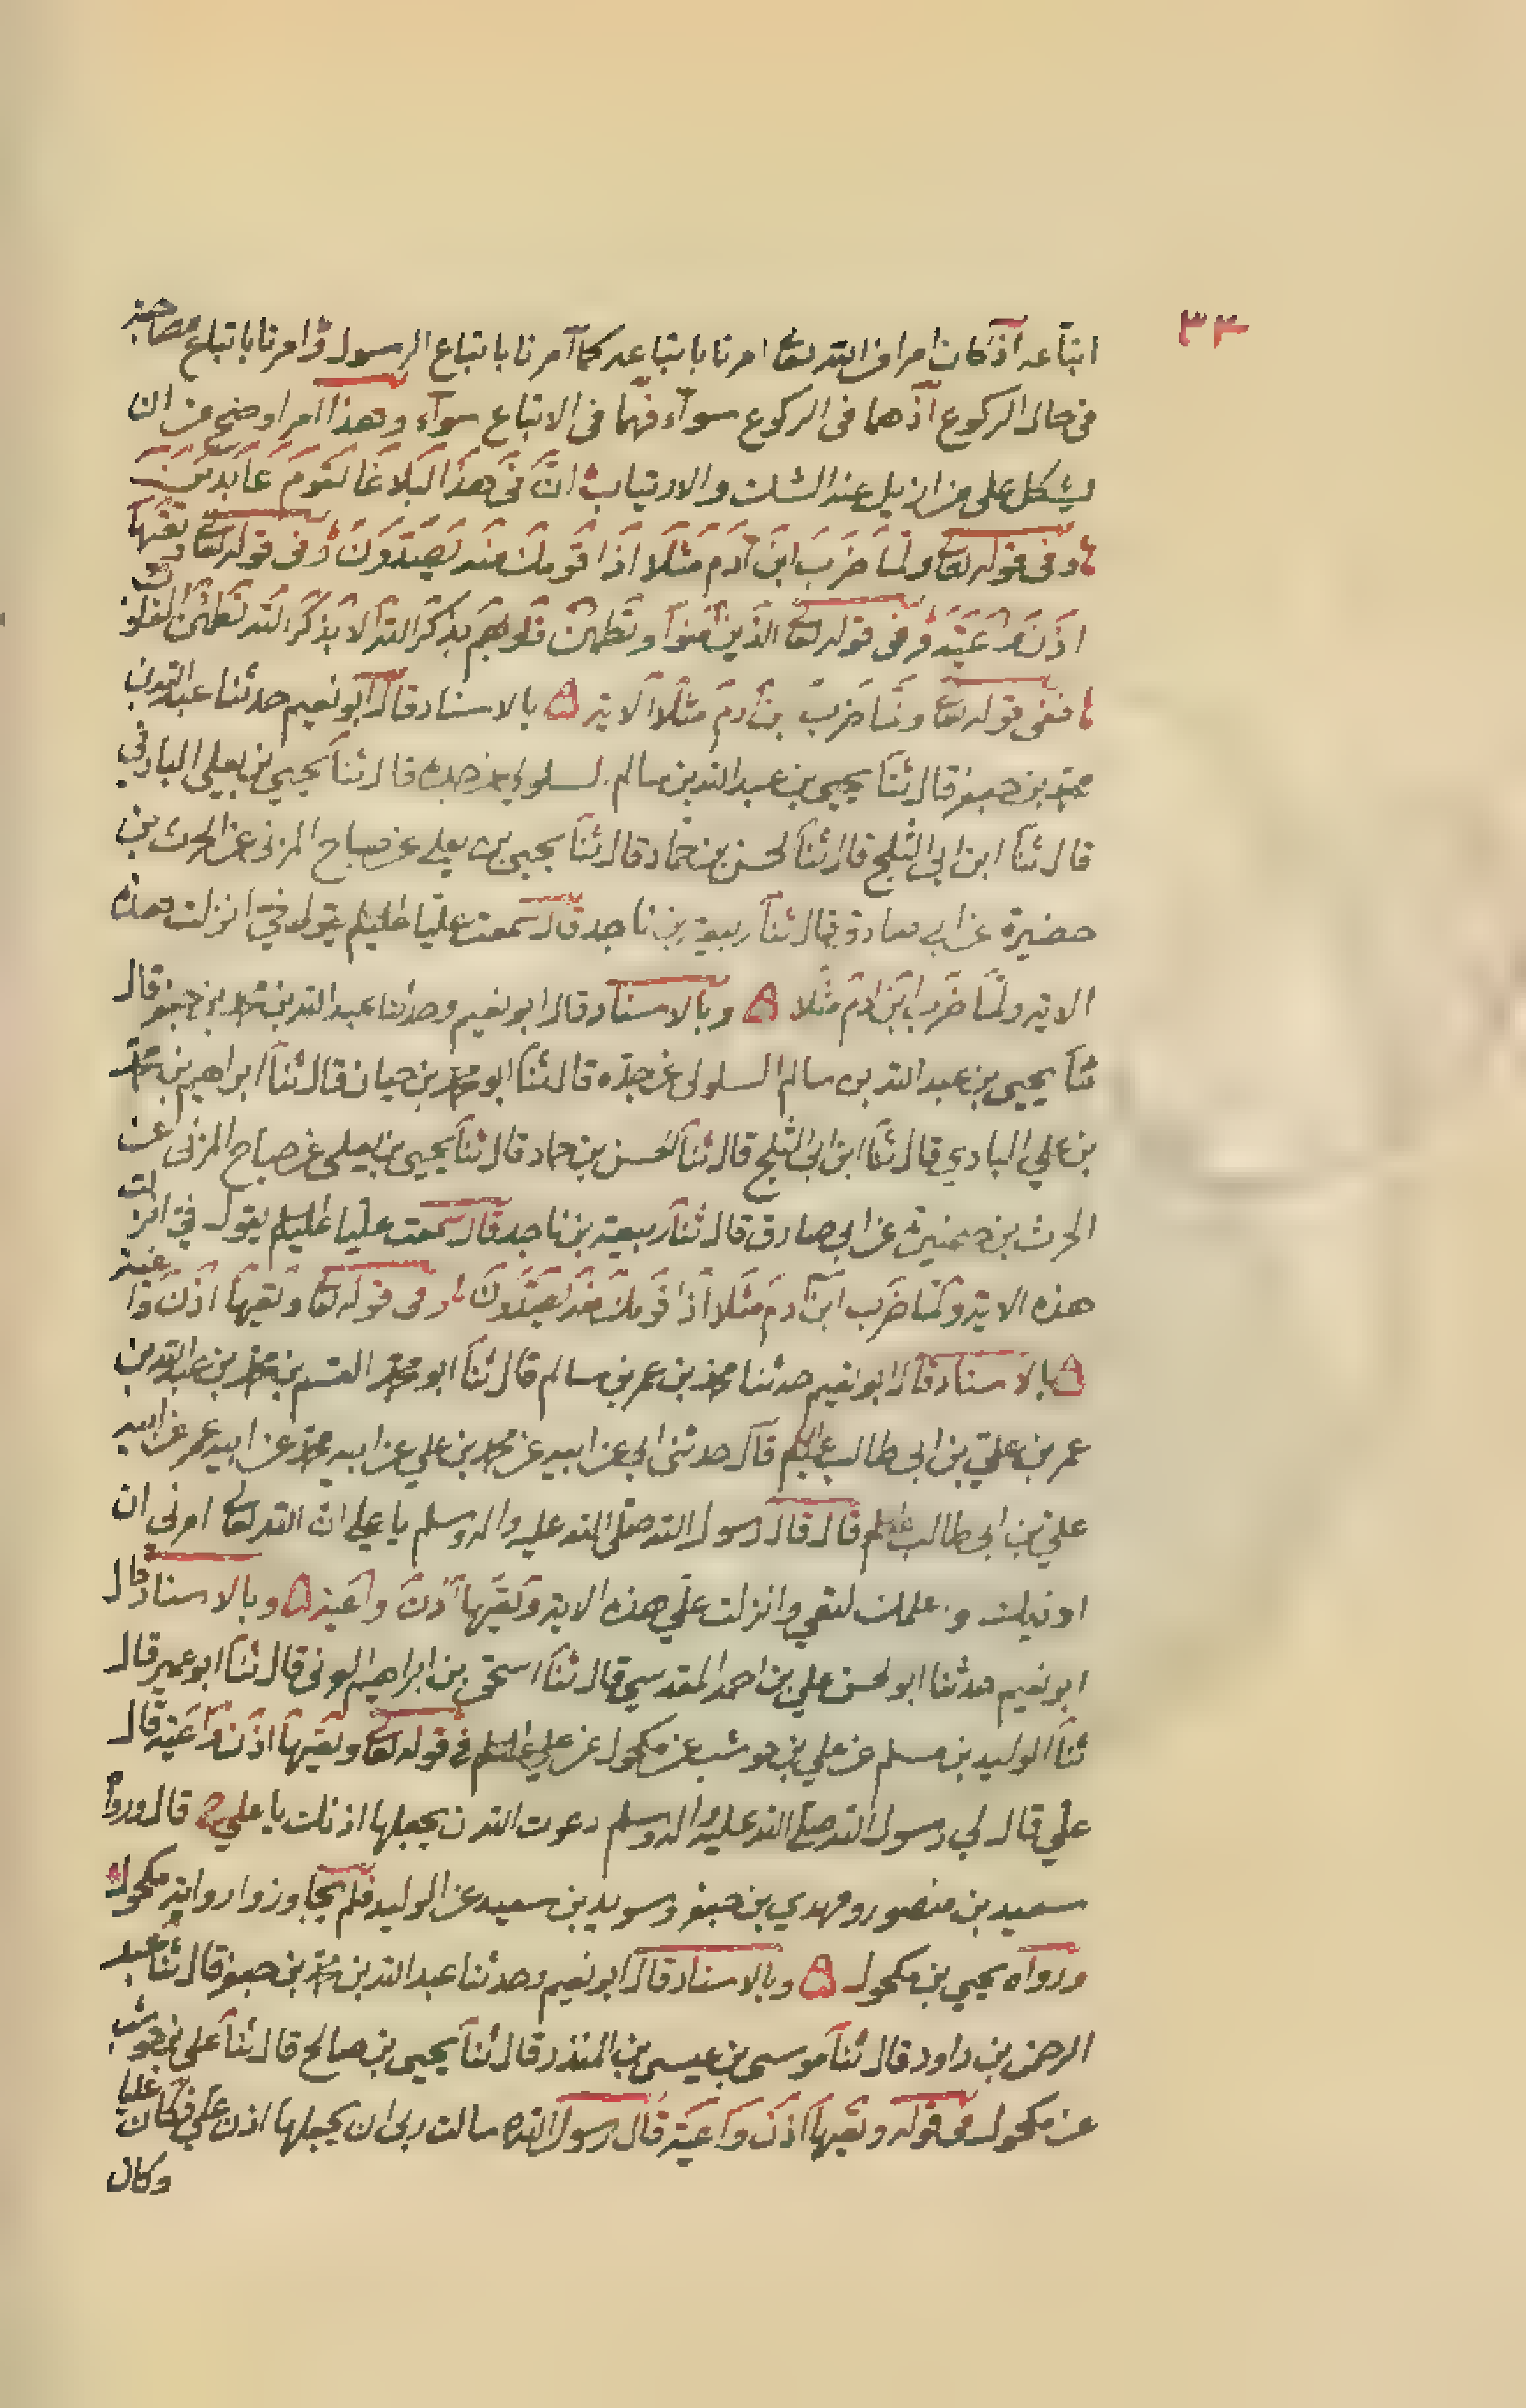 ٣٣
ابتاعه اذ كان امرا من الله تعالى امرنا باتباعه كما امرنا باتباع الرسول وامرنا باتباع صاحبه
في حال الركوع اذ هما في الركوع سواء فهما في الاتباع سواء وهذا امر اوضح من ان
يشكل على من ازيل عند الشك والارتياب ان في هذا لبلاغا لقوم عابدين
وفي قوله تعالى ولما ضرب ابن مريم مثلا اذا قومك منه يصدون وفي قوله تعالى وتعيها
اذن واعية وفي قوله تعالى الذين آمنوا وتطمئن قلوبهم بذكر الله الا بذكر الله تطمئن القلوب
ففي قوله تعالى ولما ضرب ابن مريم مثلا الاية ه بالاسناد قال ابو نعيم حدثنا عبد الله بن
محمد بن جعفر قال ثنا يحيى بن عبد الله بن سالم السلولي عن جده قال ثنا يحيى بن يعلى البادي
قال ثنا ابن ابي الثلج قال ثنا الحسن بن حماد قال ثنا يحيى بن يعلى عن صباح المزني عن الحرث بن
حضيرة عن ابي صادق قال ثنا ربيعة بن ناجد قال سمعت عليا عليه السلم يقول في انزلت هذه
الاية ولما ضرب ابن مريم مثلا ه وبالاسناد قال ابو نعيم وحدثنا عبد الله بن محمد بن جعفر قال
ثنا يحيى بن عبد الله بن سالم السلولي عن جده قال ثنا ابو محمد بن حيان قال ثنا ابراهيم بن محمد
بن علي البادي قال ثنا ابن ابي الثلج قال ثنا الحسن بن حماد قال ثنا يحيى بن يعلى عن صباح المزني عن
الحرث بن حضيرة عن ابي صادق قال ثنا ربيعة بن ناجد قال سمعت عليا عليه السلم يقول في انزلت
هذه الاية ولما ضرب ابن مريم مثلا اذا قومك منه يصدون وفي قوله تعالى وتعيها اذن واعية
ه بالاسناد قال ابو نعيم حدثنا محمد بن عمر بن سالم قال ثنا ابو محمد القسم بن محمد بن عبد الله بن
عمر بن علي بن ابي طالب عليه السلم قال حدثني ابي عن ابيه عن محمد بن علي عن ابيه محمد عن ابيه عمر عن ابيه
علي بن ابي طالب عليه السلم قال قال رسول الله صلى الله عليه واله وسلم يا علي ان الله تعالى امرني ان
ادنيك واعلمك لتعي وانزلت علي هذه الاية وتعيها اذن واعية ه وبالاسناد قال
ابو نعيم حدثنا ابو الحسن علي بن احمد المقدسي قال ثنا اسحق بن ابراهيم قال ثنا ابو عمير قال
ثنا الوليد بن مسلم عن علي بن حوشب عن مكحول عن علي عليه السلم في قوله تعالى وتعيها اذن واعية قال
علي قال لي رسول الله صلى الله عليه واله وسلم دعوت الله ان يجعلها اذنك يا علي قال ورواه
سعيد بن منصور ومهدي بن جعفر وسويد بن سعيد عن الوليد فلم يجاوزوا رواية مكحول
ورواه يحيى بن مكحول ه وبالاسناد قال ابو نعيم وحدثنا عبد الله بن محمد بن جعفر قال ثنا عبد
الرحمن بن داود قال ثنا موسى بن عيسى بن المنذر قال ثنا يحيى بن صالح قال ثنا علي بن حوشب
عن مكحول في قوله وتعيها اذن واعية قال رسول الله سالت ربي ان يجعلها اذن علي فكان عليا
وكان